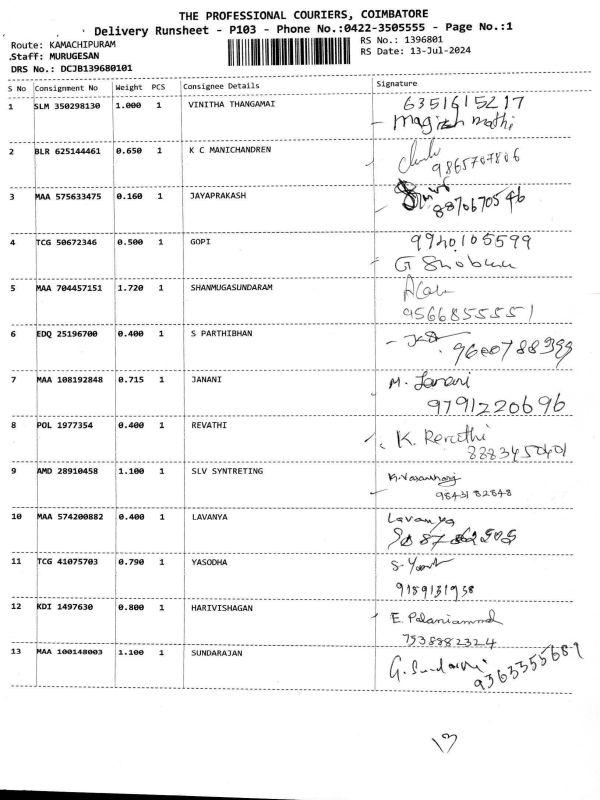 THE PROFESSIONAL COURIERS, COIMBATORE
Delivery Runsheet - P103 - Phone No.:0422-3505555 - Page No.:1
Route: KAMACHIPURAM
RS No.: 1396801
Staff: MURUGESAN
RS Date: 13-Jul-2024
DRS No.: DCJB139680101
S No Consignment No Weight PCS Consignee Details Signature
1 SLM 350298130 1.000 1 VINITHA THANGAMAI 6351615217
2 BLR 625144461 0.650 1 K C MANICHANDREN
9865707806
3 MAA 575633475 0.160 1 JAYAPRAKASH
8870670546
4 TCG 50672346 0.500 1 GOPI 9940105599
G
5 MAA 704457151 1.720 1 SHANMUGASUNDARAM
9566855551
6 EDQ 25196700 0.400 1 S PARTHIBHAN
7 MAA 108192848 0.715 1 JANANI M. Janani
9791220696
8 POL 1977354 0.400 1 REVATHI K. Revathi
8883450401
9 AMD 28910458 1.100 1 SLV SYNTRETING
9843182848
10 MAA 574200882 0.400 1 LAVANYA Lavanya
11 TCG 41075703 0.790 1 YASODHA
9159131938
12 KDI 1497630 0.800 1 HARIVISHAGAN E. Palaniammal
7538882324
13 MAA 100148003 1.100 1 SUNDARAJAN
9363355689
13